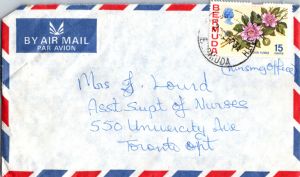 BY AIR MAIL
PAR AVION
BERMUDA
15
Nursing Office
Mrs J. Lourd
Asst Supt of Nurses
550 University Ave
Toronto Ont